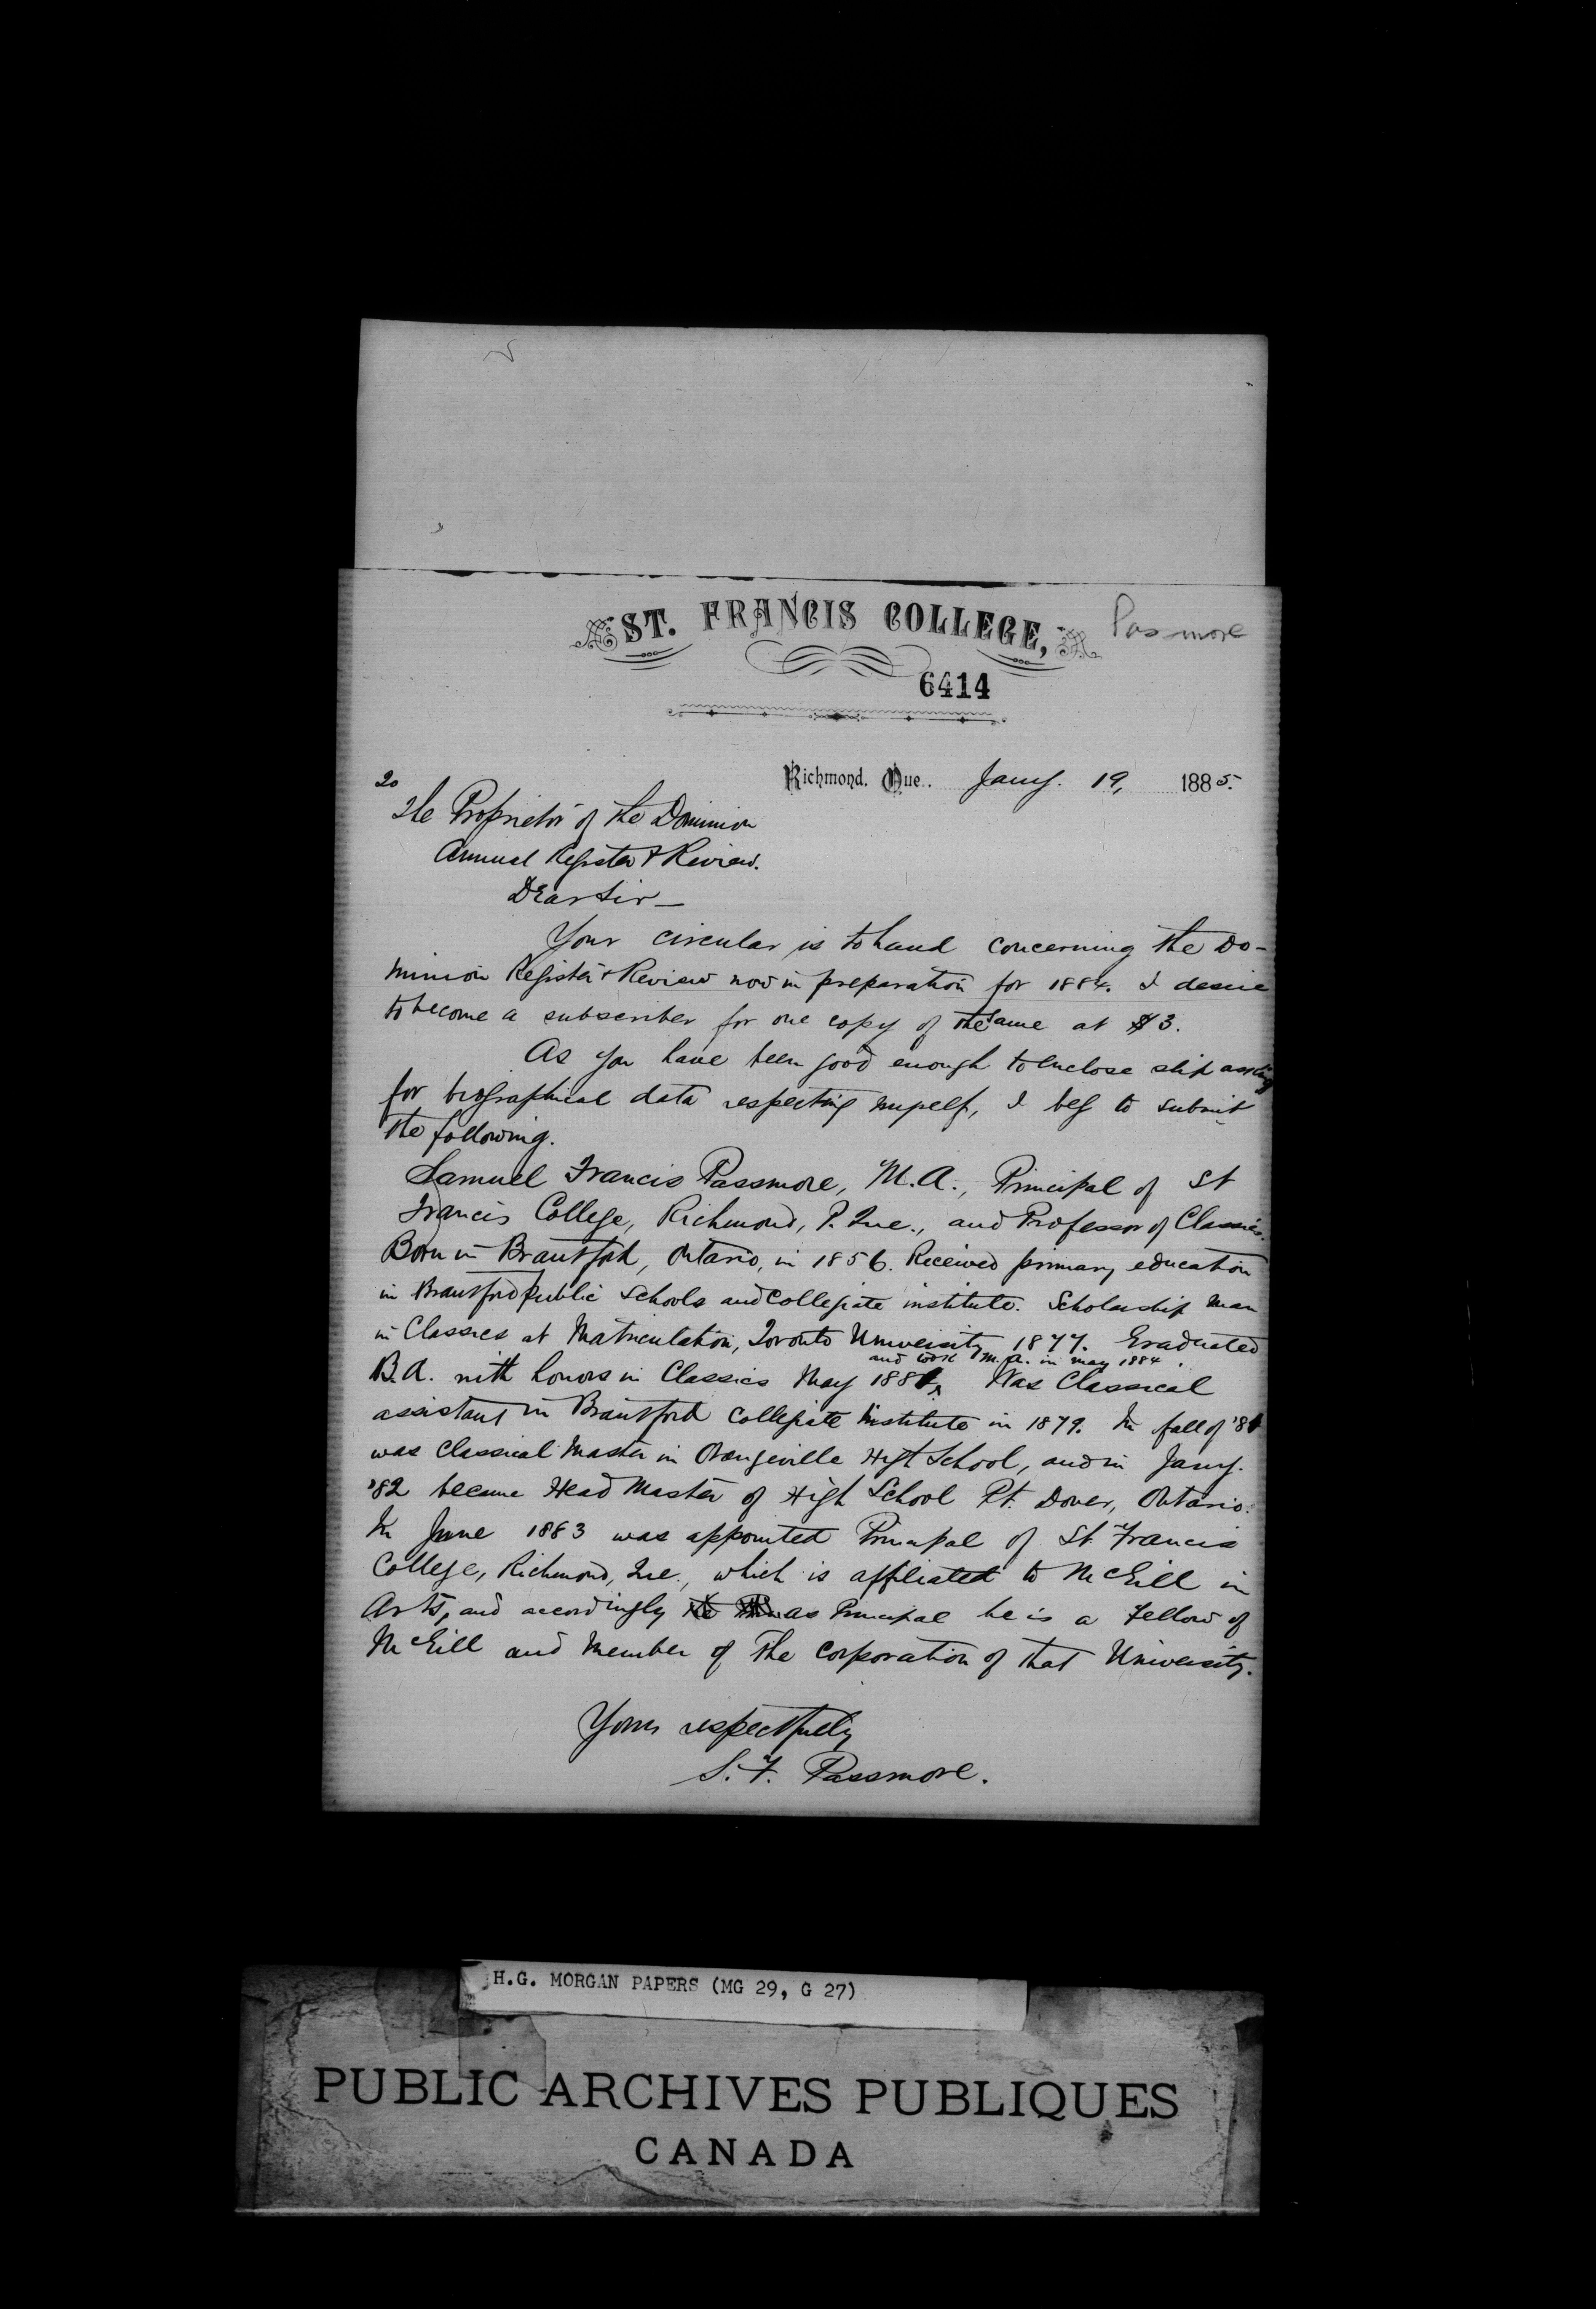 ST. FRANCIS COLLEGE,
Passmore
6414
Richmond. Que.. Jany. 19, 1885.
To
The Proprietor of the Dominion
Annual Register & Review.
Dear Sir —
Your circular is to hand concerning the Do-
minion Register & Review now in preparation for 1884. I desire
to become a subscriber for one copy of the same at $3.
As you have been good enough to enclose slip asking
for biographical data respecting myself, I beg to submit
the following.
Samuel Francis Passmore, M.A., Principal of St
Francis College, Richmond, P. Que., and Professor of Classics.
Born in Brantford, Ontario, in 1856. Received primary education
in Brantford Public Schools and Collegiate institute. Scholarship man
in Classics at Matriculation, Toronto University 1877. Graduated
and took M.A. in May 1884.
B.A. with honors in Classics May 1881, Was Classical
assistant in Brantford Collegiate Institute in 1879. In fall of '81
was Classical Master in Orangeville High School, and in Jany.
'82 became Head Master of High School Pt. Dover, Ontario.
In June 1883 was appointed Principal of St. Francis
College, Richmond, Que., which is affiliated to McGill in
Arts, and accordingly as Principal he is a Fellow of
McGill and Member of the Corporation of that University.
Yours respectfully
S. F. Passmore.
H.G. MORGAN PAPERS (MG 29, G 27)
PUBLIC ARCHIVES PUBLIQUES
CANADA